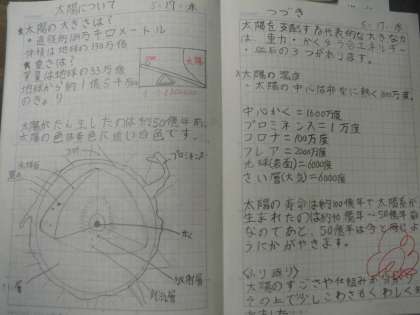 太陽について 5.17.水
★太陽の大きさは?
・直径約139万キロメートル
体積は地球の130万倍
★重さは?
質量は地球の33万倍
地球から約1億5千万
のきょり
太陽
太陽がたん生したのは約50億年前、
太陽の色は黄色に近い白色です。
コロナ
プロミネンス
黒点
かく
放射層
対流層
つづき 5.17.水
太陽を支配する代表的な大きな力
は、重力・かくゆうごうエネルギー
の3つがあります。
太陽の温度
・太陽の中心は非常に熱く1600万度。
中心かく=1600万度
プロミネンス=1万度
コロナ=100万度
フレア=2000万度
光球(表面)=6000度
さい層(大気)=6000度
太陽の寿命は約100億年で太陽系が
生まれたのは約46億年~50億年前
なのであと、50億年は今と同じよ
うにかがやきます。
〈ふり返り〉
太陽のすごさや仕組みが
その上で少しこわさもくわしく